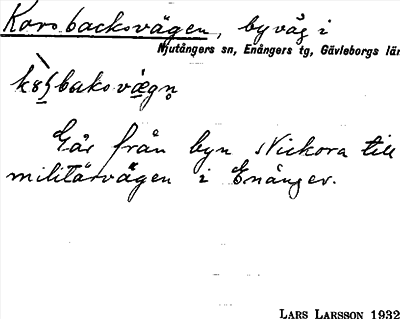 Korsbacksvägen, byväg i
Njutångers sn, Enångers tg, Gävleborgs län
Går från byn Nickora till
militärvägen i Enånger.
LARS LARSSON 1932